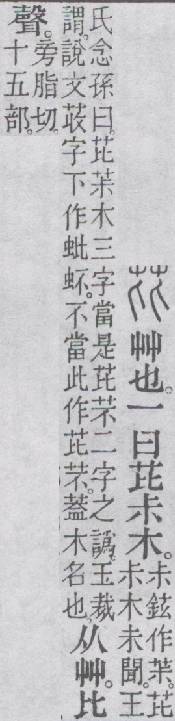 芘艸也。一曰芘尗木。尗鉉作茮。芘
尗木未聞。王
氏念孫曰。芘茮木三字當是芘芣二字之譌。玉裁
謂。說文荍字下作蚍𧉈。不當此作芘芣。葢木名也。从艸。比
聲。旁脂切。
十五部。